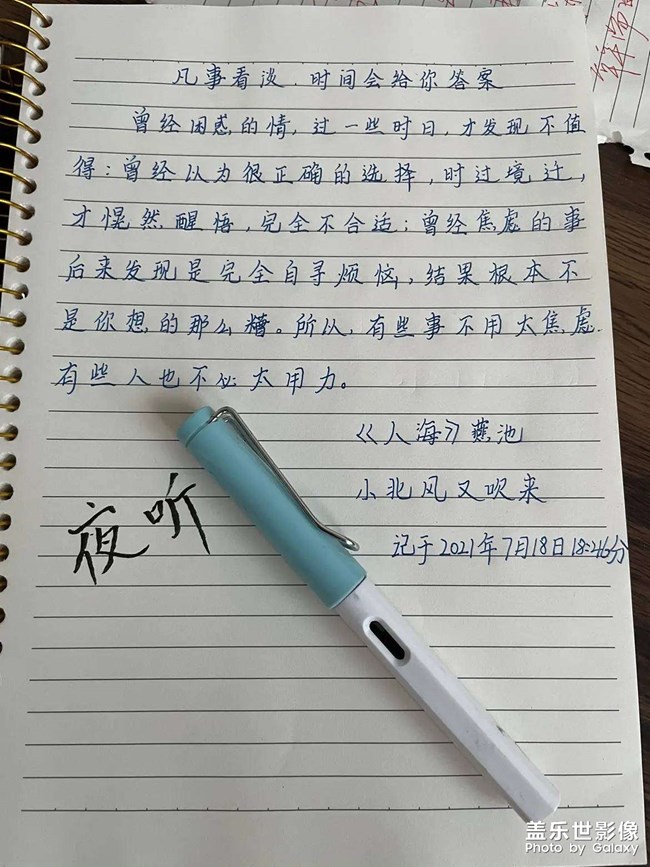 凡事看淡，时间会给你答案
曾经困惑的情，过一些时日，才发现不值
得：曾经以为很正确的选择，时过境迁，
才愰然醒悟，完全不合适；曾经焦虑的事
后来发现是完全自寻烦恼，结果根本不
是你想的那么糟。所以，有些事不用太焦虑.
有些人也不必太用力。
《人海》燕池
小北风又吹来
记于2021年7月18日18:46分
夜听
盖乐世影像
Photo by Galaxy